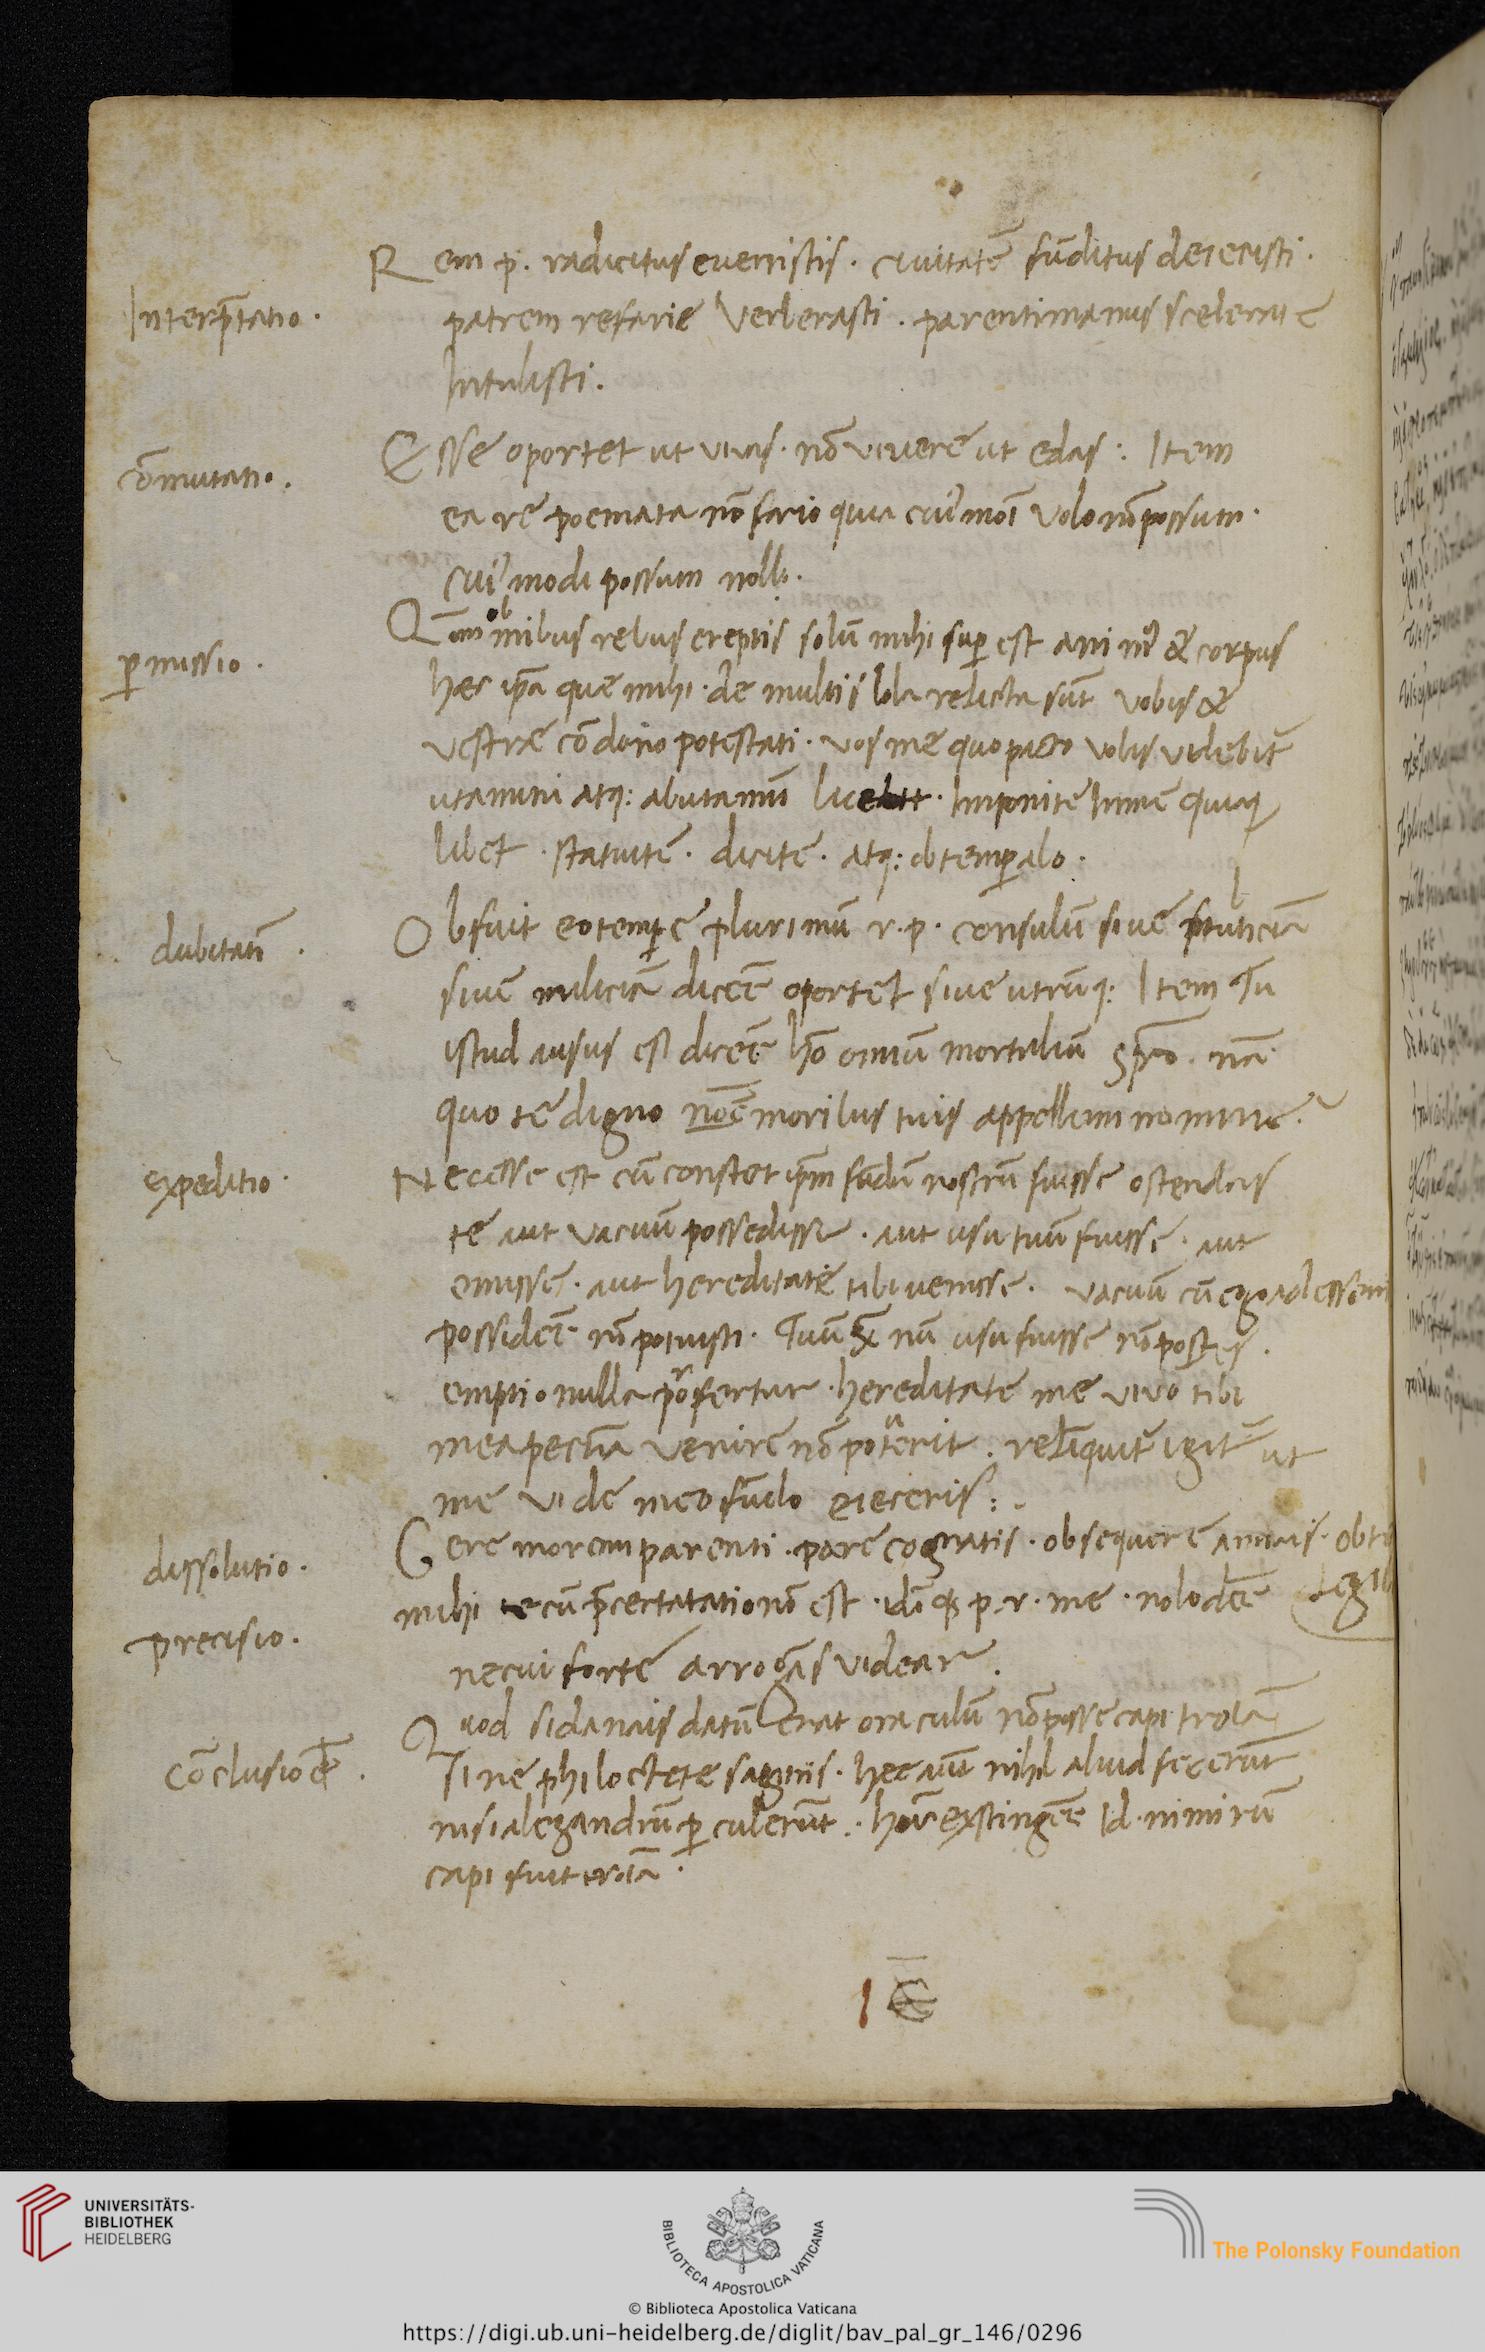 Rem p. radicitus euerristis . ciuitatē fūditus deiecisti .
Interp̄tatio .
patrem nefarie verberasti . parenti manus scelerate
Intulisti .
Esse oportet ut viuas . nō viuere ut edas : Item
cōmutatio .
ea re poemata nō fario quia cui᾿moī volo nō possum .
cui᾿modi possum nollo .
Qm̄ ob mibus rebus ereptis solū mihi super est anim᾿ & corpus
p̱missio .
haec ip̄a que mihi . de multis sola relicta sūt vobis &
vestrae cōdono potestati . vos me quo pacto vobis videbit᷑
utamini atq: abutamini licebit . Imponite In me quicq̄
libet . statuite . dicite . atq: obtemp̱abo .
dubitatō .
Obfuit eo temp̱e plurimū r . p . consulū siue stulticiā
siue maliciā dicere oportet siue utrūq: Item Tu
istud ausus es dicere hō omniū mortaliū
quo te digno moribus tuis appellem nomine ?
expeditio .
Necesse est cū constet ip̄m fūdū nostrū fuisse ostendas
te aut vacuū possedisse . aut usu tuū fuisse . aut
emisse . aut hereditatē tibi venisse . vacuū cū ego adessem
possidere nō potuisti . Tuū nū usu fuisse nō potes .
emptio nulla profertur . hereditate me vivo tibi
mea pecunia venire nō poterit . relinquit᷑ igit᷑ ut
me vi de meo fūdo eieceris : .
dissolutio .
Gere morem parenti . pare cognatis . obsequere amicis . obte
legib
precisio .
mihi tecū p̄certatatio nō est . idō q̄ p . r . me . nolo dicere
ne cui forte arrogās videar .
Quod si danais datū erat oraculū nō posse capi troiā
Cōclusio ē .
sine philoctete sagittis . hec aut̄ nihil aliud fecerūt
nisi alexandrū p̱culerūt . hūc extingere Id . nimirū
capi fuit troiā .
1
UNIVERSITÄTS-
BIBLIOTHEK
HEIDELBERG
BIBLIOTECA APOSTOLICA VATICANA
The Polonsky Foundation
© Biblioteca Apostolica Vaticana
https://digi.ub.uni-heidelberg.de/diglit/bav_pal_gr_146/0296